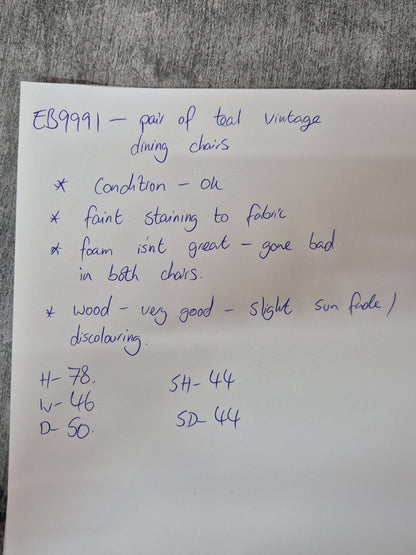 EB9991 — pair of teal vintage
dining chairs
* Condition - ok
* faint staining to fabric
* foam isn't great - gone bad
in both chairs.
* wood - very good - slight sun fade /
discolouring.
H- 78. SH- 44
W- 46. SD- 44
D- 50.